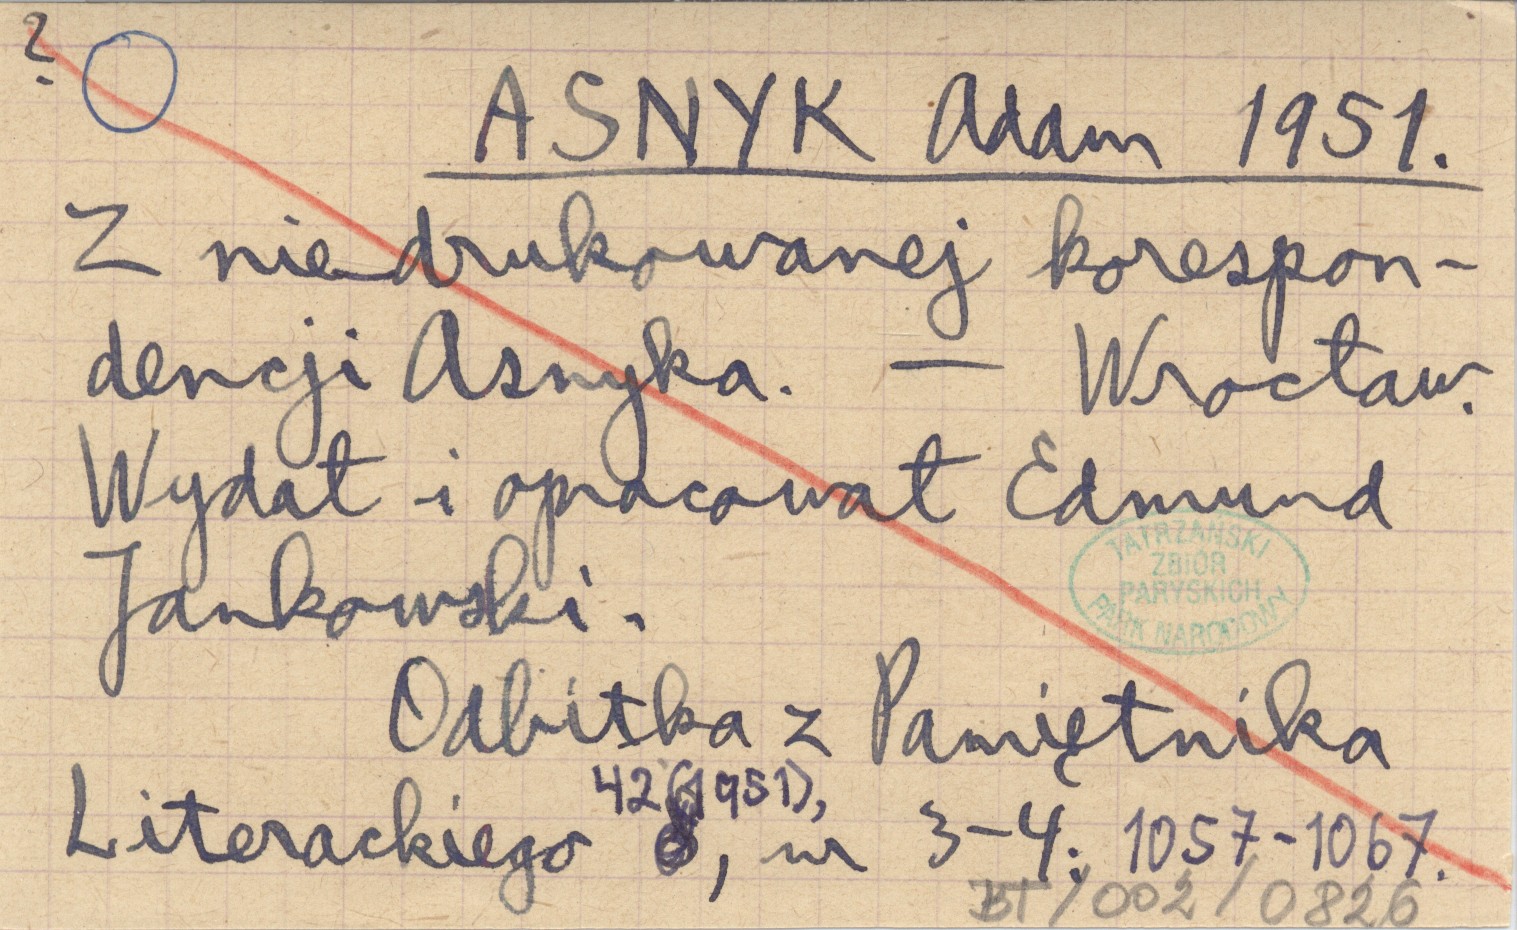 ?
ASNYK Adam 1951.
Z niedrukowanej korespon-
dencji Asnyka. — Wrocław.
Wydał i opracował Edmund
Jankowski.
TATRZAŃSKI
ZBIÓR
PARYSKICH
PARK NARODOWY
Odbitka z Pamiętnika
42 (1951),
Literackiego , nr 3-4: 1057-1067.
BT/002/0826